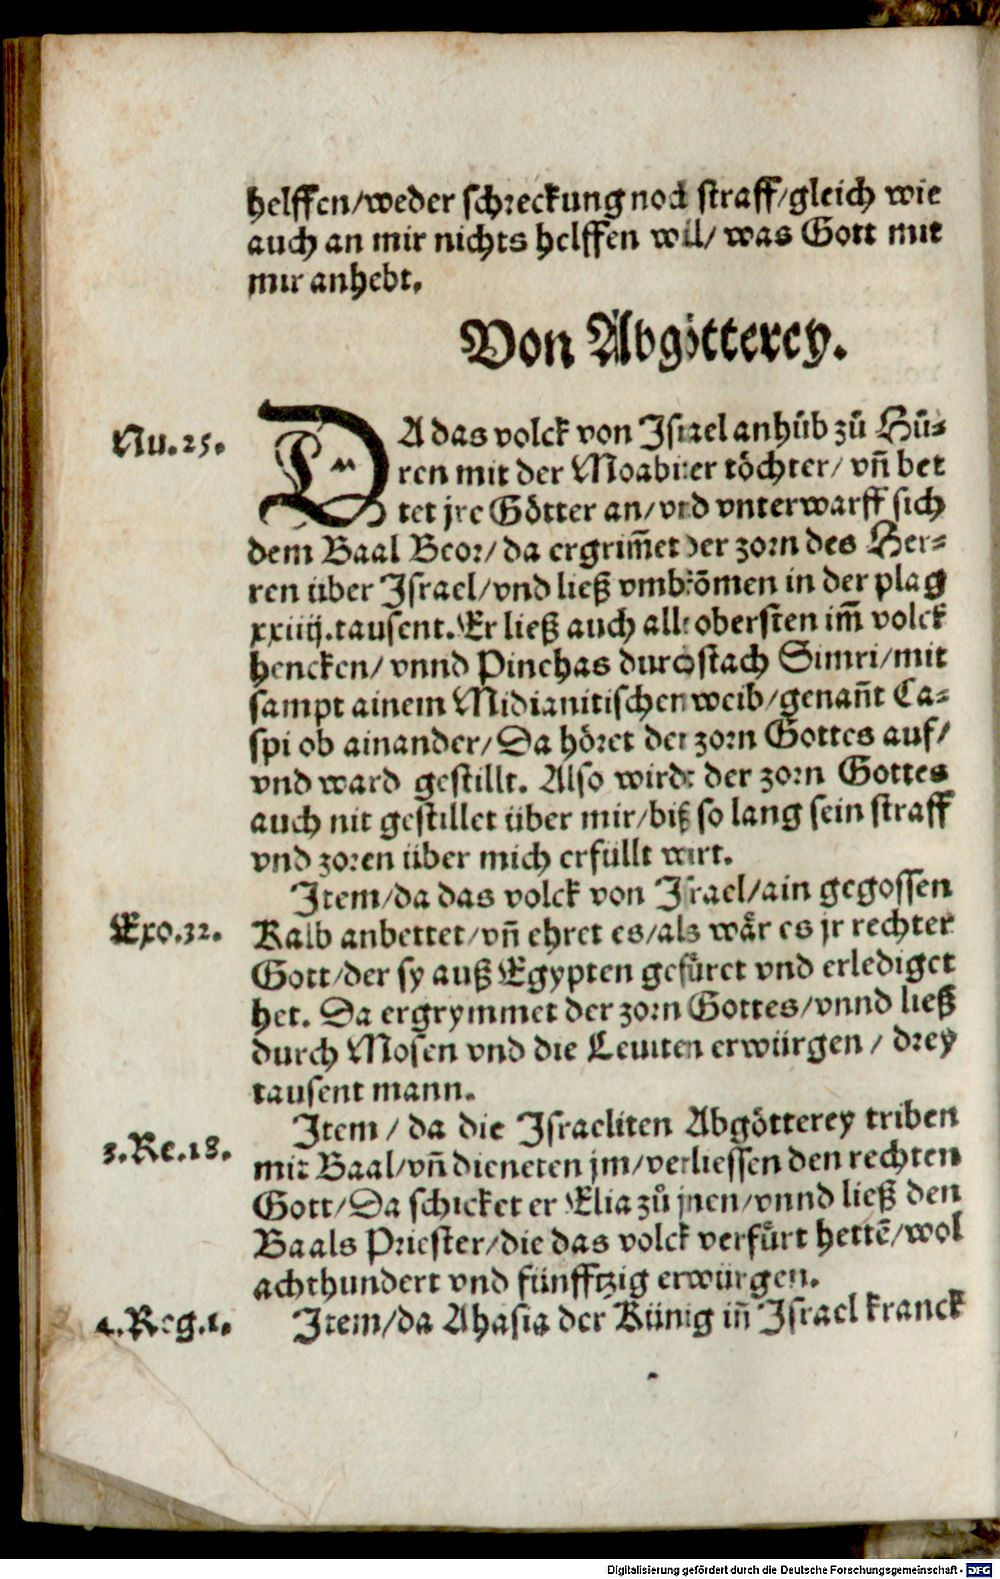 helffen/weder schreckung noch straff/gleich wie
auch an mir nichts helffen will/ was Gott mit
mir anhebt.
Von Abgötterey.
Nu.25.
DA das volck von Israel anhůb zů Hů⸗
ren mit der Moabiter töchter/ vñ bet
tet jre Götter an/vnd vnterwarff sich
dem Baal Beor/ da ergrim̃et der zorn des Her⸗
ren über Israel/vnd ließ vmbkõmen in der plag
xxiiij.tausent.Er ließ auch alle obersten im̃ volck
hencken/ vnnd Pinehas durchstach Simri/mit
sampt ainem Midianitischen weib/genañt Ca⸗
spi ob ainander/Da höret der zorn Gottes auf/
vnd ward gestillt. Also wirdt der zorn Gottes
auch nit gestillet über mir/biß so lang sein straff
vnd zoren über mich erfüllt wirt.
Item/da das volck von Israel/ain gegossen
Exo.32.
Kalb anbettet/vñ ehret es/als wår es jr rechter
Gott/der sy auß Egypten gefůret vnd erlediget
het. Da ergrymmet der zorn Gottes/vnnd ließ
durch Mosen vnd die Leuiten erwürgen / drey
tausent mann.
Item / da die Israeliten Abgötterey triben
3.Re.18.
mit Baal/vñ dieneten jm/verliessen den rechten
Gott/Da schicket er Elia zů jnen/vnnd ließ den
Baals Priester/die das volck verfůrt hettẽ/wol
achthundert vnd fünfftzig erwürgen.
4.Reg.1.
Item/da Ahasia der Künig iñ Israel kranck
Digitalisierung gefördert durch die Deutsche Forschungsgemeinschaft - DFG